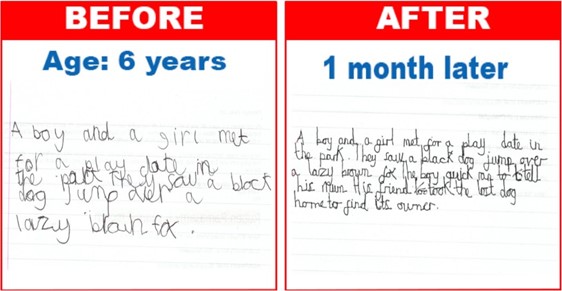 BEFORE
Age: 6 years
A boy and a girl met
for a play date in
the park They saw a
dog jump over a
lazy fox .
AFTER
1 month later
A boy and a girl met for a play date in
the park. They saw a black dog jump over
a lazy brown fox the boy quick ran to tell
his mum His friend took the lost dog
home to find its owner.